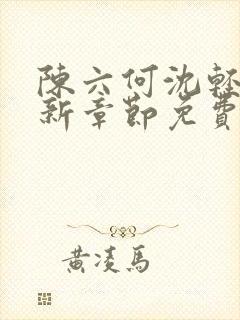 陳六何沈輕
新章節免費
黃凌馬